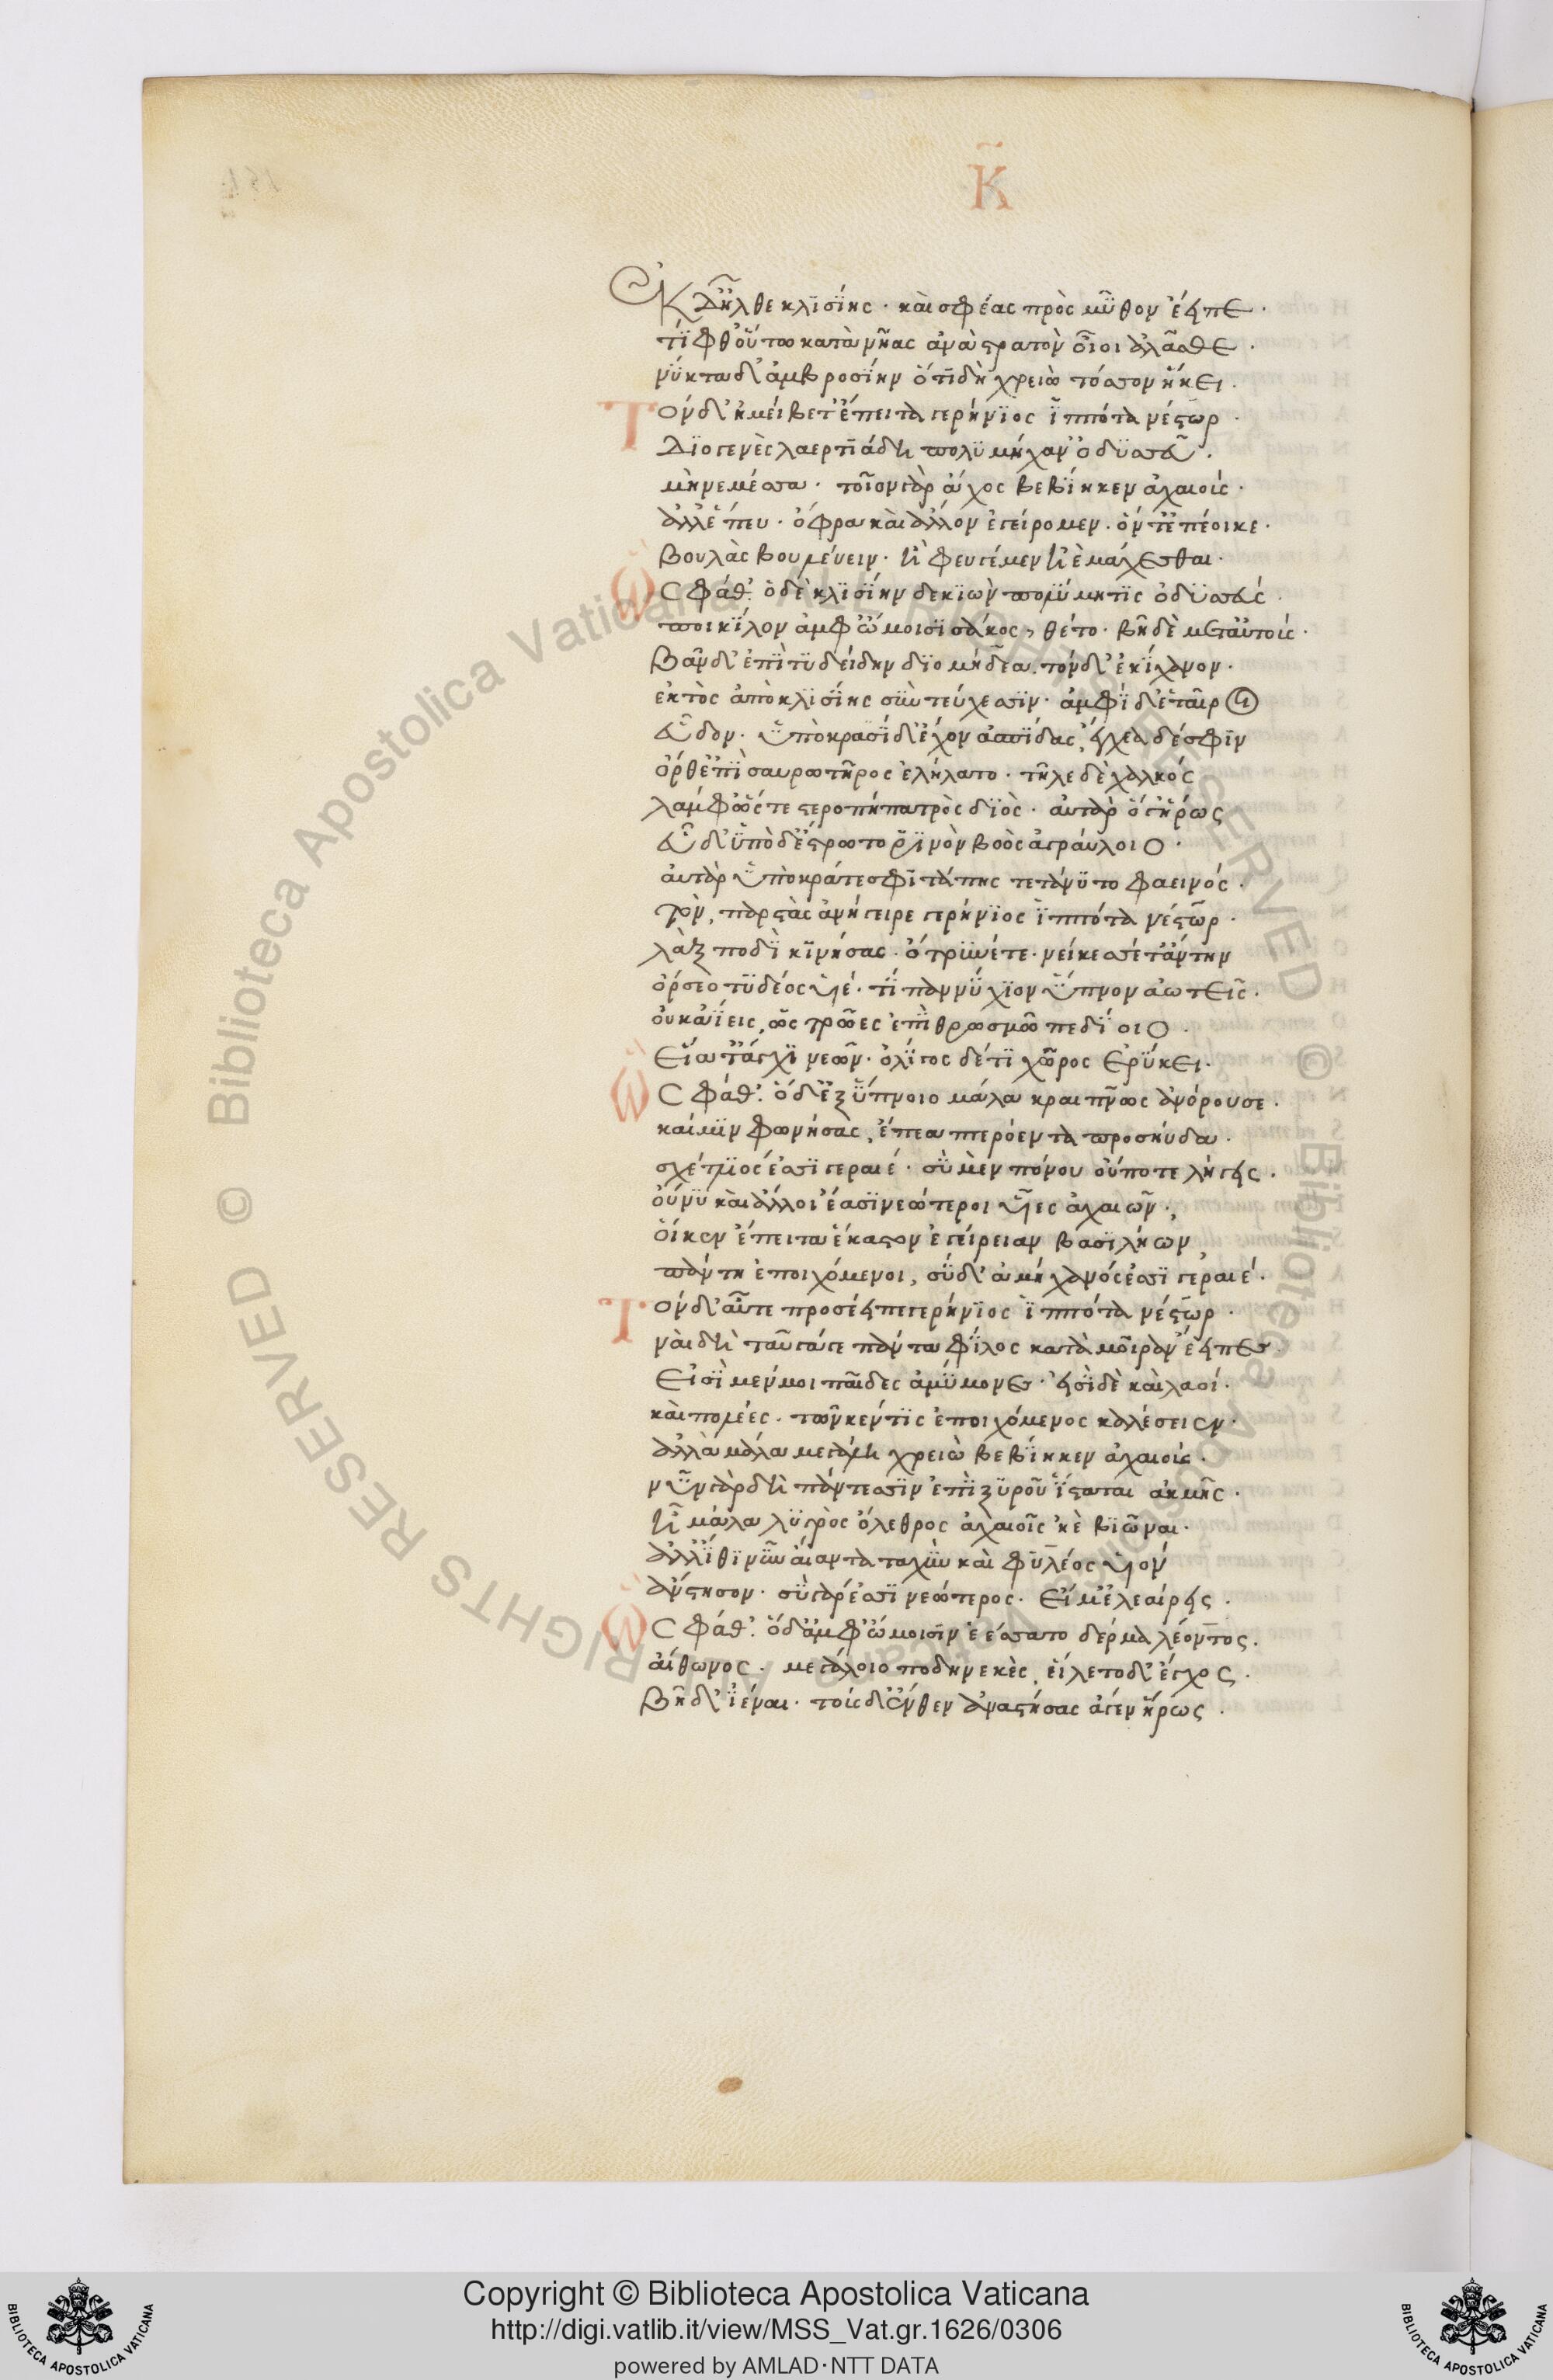 Κ
Ἐκ δ' ἦλθε κλισίης· καὶ σφέας πρὸς μῦθον ἔειπε·
τίφθ' οὕτω κατὰ νῆας ἀνὰ στρατὸν οἶοι ἀλᾶσθε·
νύκτα δι' ἀμβροσίην ὅτι δὴ χρειὼ τόσον ἥκει·
Τὸν δ' ἠμείβετ' ἔπειτα γερήνιος ἱππότα νέστωρ·
Διογενὲς λαερτιάδη πολυμήχαν' ὀδυσσεῦ·
μὴ νεμέσσα· τοῖον γὰρ ἄχος βεβίηκεν ἀχαιούς·
ἀλλ' ἕπευ· ὄφρα καὶ ἄλλον ἐγείρομεν· ὅν τ' ἐπέοικε·
βουλὰς βουλεύειν· ἢ φευγέμεν ἠὲ μάχεσθαι·
Ὣς φάθ'· ὁ δὲ κλισίην δε κιὼν πολύμητις ὀδυσσεύς·
ποικίλον ἀμφ' ὤμοισι σάκος, θέτο· βῆ δὲ μετ' αὐτούς·
Βὰν δ' ἐπὶ τυδείδην διομήδεα· τὸν δ' ἐκίχανον·
ἐκτὸς ἀπὸ κλισίης σὺν τεύχεσιν· ἀμφὶ δ' ἑταῖροι
εὗδον· ὑπὸ κρασὶ δ' ἔχον ἀσπίδας, ἔγχεα δέ σφιν
ὄρθ' ἐπὶ σαυρωτῆρος ἐλήλατο· τῆλε δὲ χαλκός
λάμφ' ὥς τε στεροπὴ πατρὸς διός· αὐτὰρ ὅγ' ἥρως
εὗδ' ὑπὸ δ' ἔστρωτο ῥινὸν βοὸς ἀγραύλοιο·
αὐτὰρ ὑπὸ κράτεσφι τάπης τετάνυτο φαεινός·
τὸν, παρστὰς ἀνήγειρε γερήνιος ἱππότα νέστωρ·
λὰξ ποδὶ κινήσας· ὄτρυνέ τε· νείκεσέ τ' ἄντην
ὄρσεο τυδέος υἱέ· τί παννύχιον ὕπνον ἀωτεῖς·
οὐκ ἀΐεις, ὡς τρῶες ἐπὶ θρωσμῷ πεδίοιο·
Εἵατ' ἄγχι νεῶν· ὀλίγος δέ τι χῶρος ἐρύκει·
Ὣς φάθ'· ὁ δ' ἐξ ὕπνοιο μάλα κραιπνῶς ἀνόρουσε·
καί μιν φωνήσας, ἔπεα πτερόεντα προσηύδα·
σχέτλιός ἐσσι γεραιέ· σὺ μὲν πόνου οὔποτε λήγεις·
οὔ νυ καὶ ἄλλοι ἔασι νεώτεροι υἷες ἀχαιῶν·,
οἵ κεν ἔπειτα ἕκαστον ἐγείρειαν βασιλήων
πάντη ἐποιχόμενοι, σὺ δ' ἀμήχανός ἐσσι γεραιέ·
Τὸν δ' αὖτε προσέειπε γερήνιος ἱππότα νέστωρ·
ναὶ δὴ ταῦτά γε πάντα φίλος κατὰ μοῖραν ἔειπες·
Εἰσὶ μέν μοι παῖδες ἀμύμονες· εἰσὶ δὲ καὶ λαοί·
καὶ πολέες· τῶν κέν τις ἐποιχόμενος καλέσειεν·
ἀλλὰ μάλα μεγάλη χρειὼ βεβίηκεν ἀχαιούς·
νῦν γὰρ δὴ πάντεσσιν ἐπὶ ξυροῦ ἵσταται ἀκμῆς·
ἢ μάλα λυγρὸς ὄλεθρος ἀχαιοῖς ἠὲ βιῶναι·
ἀλλ' ἴθι νῦν αἴαντα ταχὺν καὶ φυλέος υἱόν
ἄνστησον· σὺ γάρ ἐσσι νεώτερος· Εἴ μ' ἐλεαίρεις·
Ὣς φάθ'· ὁ δ' ἀμφ' ὤμοισιν ἑέσσατο δέρμα λέοντος·
αἴθωνος· μεγάλοιο ποδηνεκὲς, εἵλετο δ' ἔγχος·
Βῆ δ' ἰέναι· τοὺς δ' ἔνθεν ἀναστήσας ἄγεν ἥρως·
© Biblioteca Apostolica Vaticana ALL RIGHTS RESERVED
© Biblioteca Apostolica Vaticana ALL RIGHTS RESERVED
BIBLIOTECA APOSTOLICA VATICANA
Copyright © Biblioteca Apostolica Vaticana
http://digi.vatlib.it/view/MSS_Vat.gr.1626/0306
powered by AMLAD·NTT DATA
BIBLIOTECA APOSTOLICA VATICANA